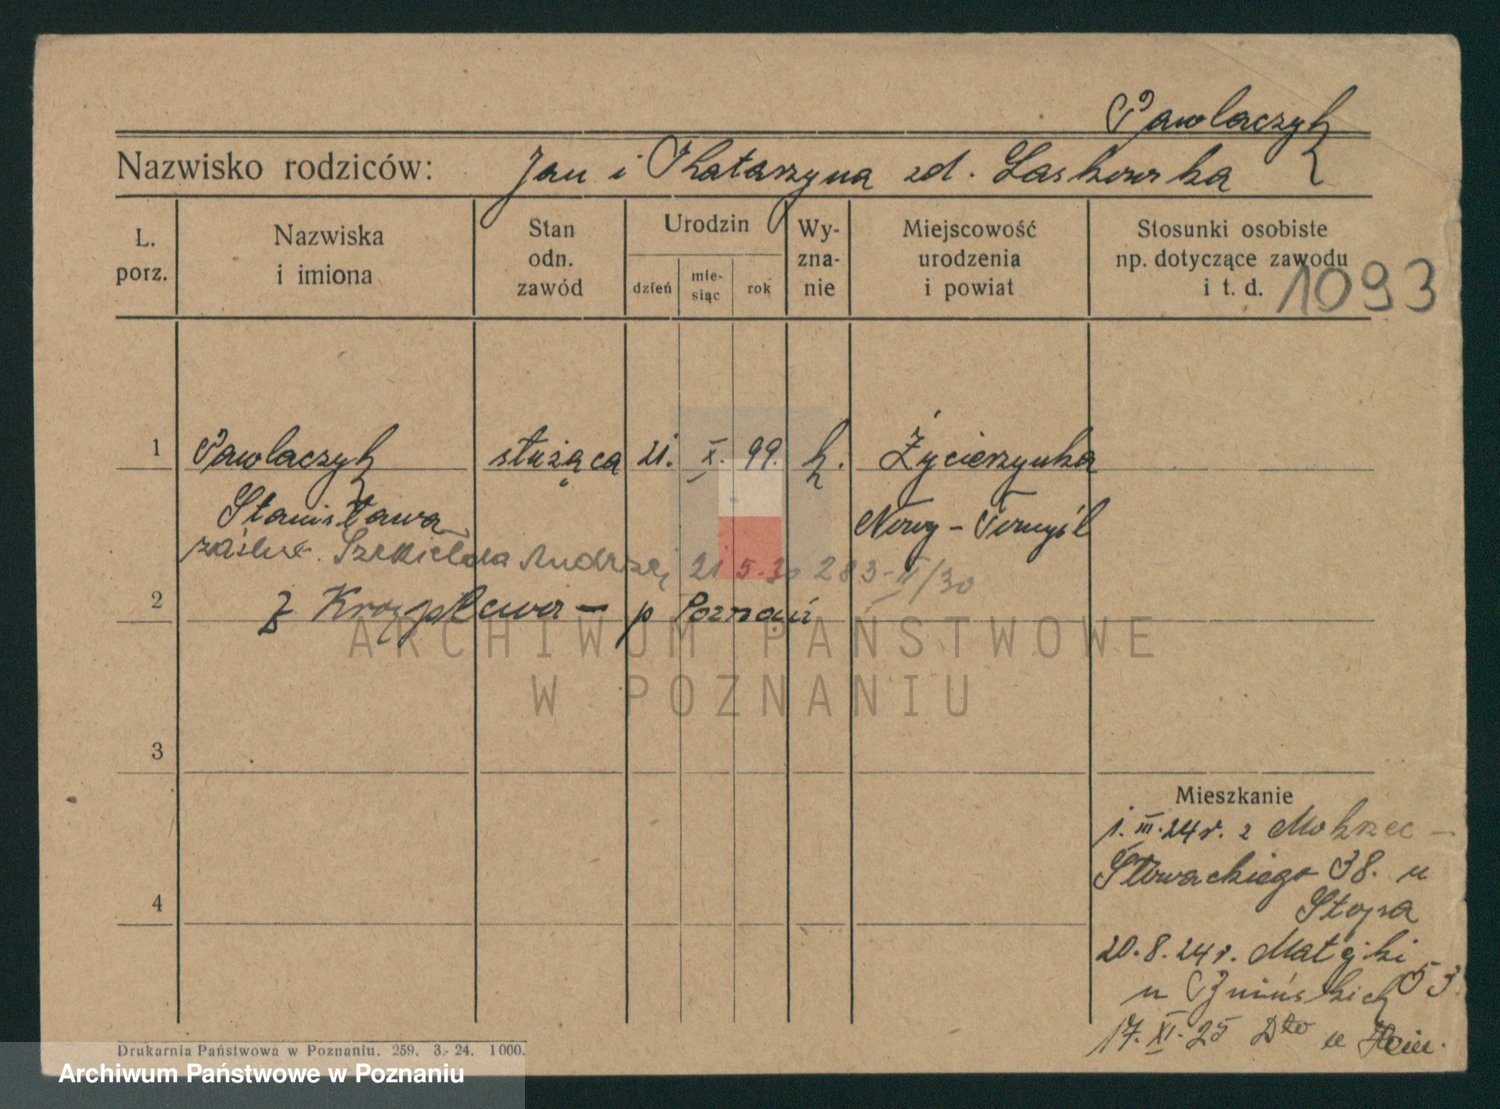 Pawlaczyk
Nazwisko rodziców: Jan i Katarzyna zd. Laskowska
L. porz.
Nazwiska i imiona
Stan odn. zawód
Urodzin
dzień
mie-siąc
rok
Wy-zna-nie
Miejscowość urodzenia i powiat
Stosunki osobiste np. dotyczące zawodu i t. d.
1093
1 Pawlaczyk służąca 21. X. 99. k. Życierzynka
Stanisława Nowy-Tomyśl
Andrzej 21 5.30 283-II/30
2 z p Poznań
3
4
Mieszkanie
1. III. 24 r. z
Słowackiego 38. u
Stojsa
20.8.24 r. Matejki 53
u Żnińskich
17. XI. 25 Dto u
ARCHIWUM PAŃSTWOWE
W POZNANIU
Drukarnia Państwowa w Poznaniu. 259. 3.- 24. 1000.
Archiwum Państwowe w Poznaniu